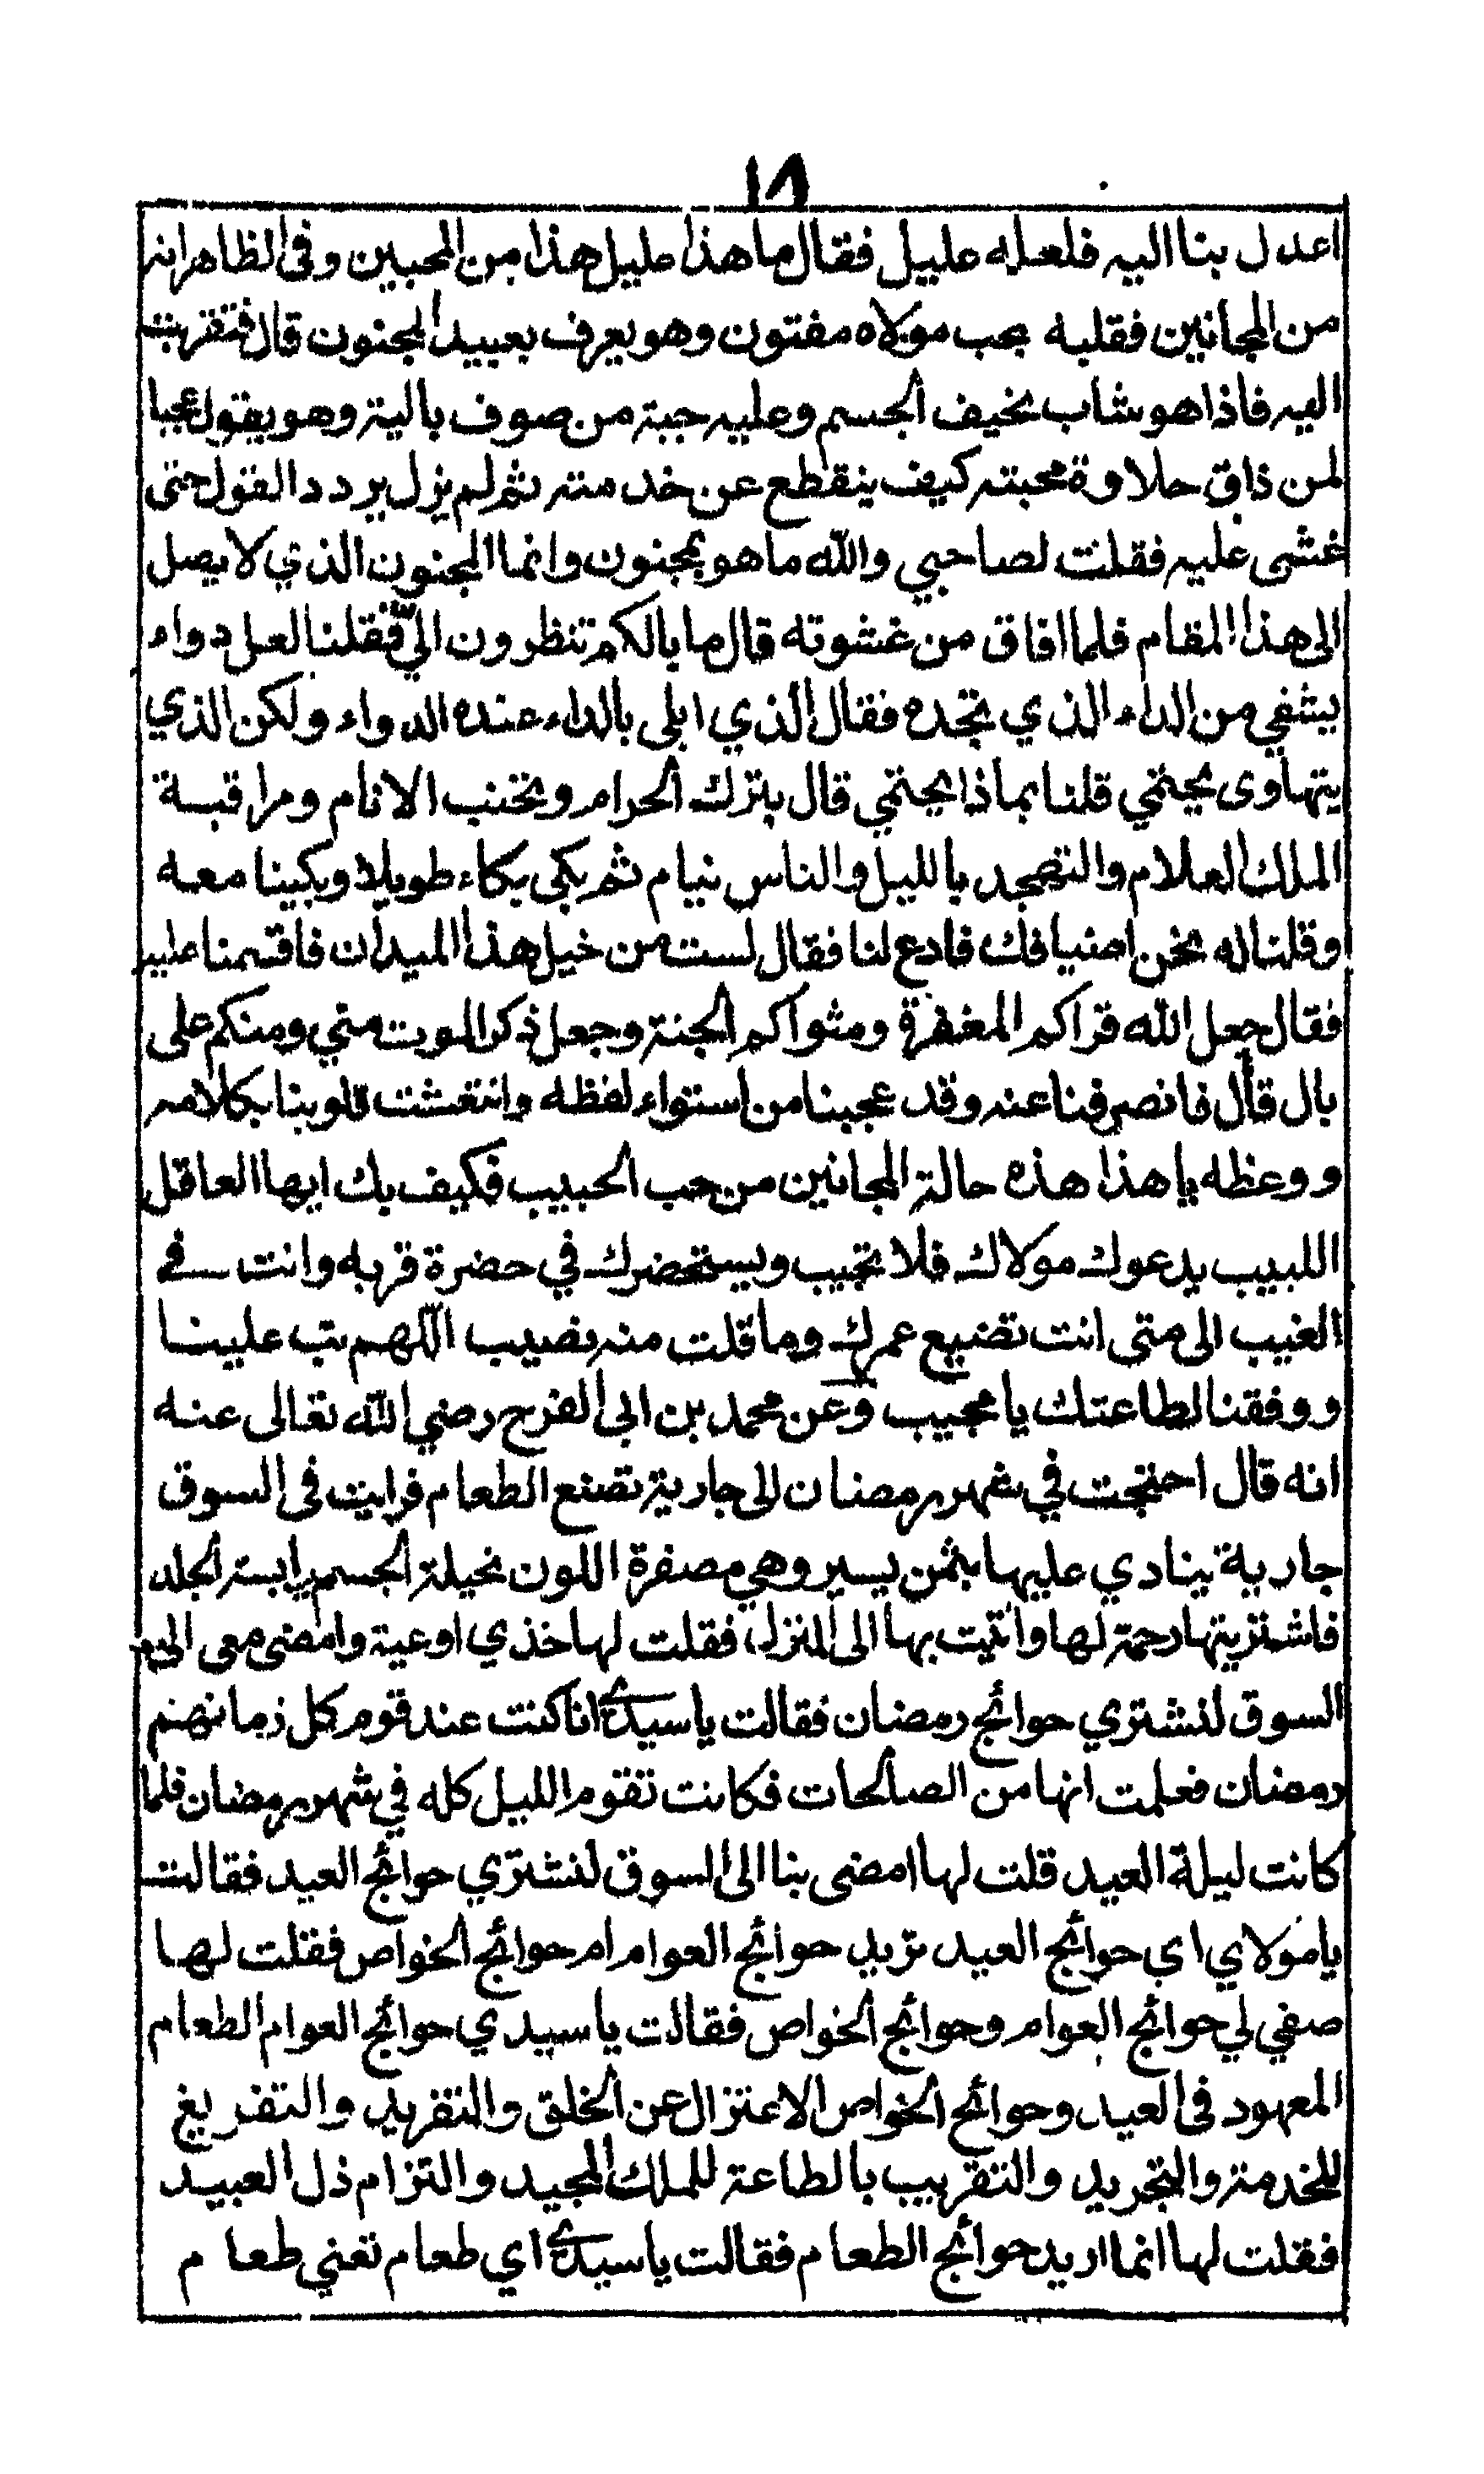 ١٨
اعدل بنا اليه فلعله عليل فقال ما هذا عليل هذا من المحبين وفى الظاهر انه
من المجانين فقلبه بحب مولاه مفتون وهو يعرف بعبيد المجنون قال فتقربت
اليه فاذا هو شاب نحيف الجسم وعليه جبة من صوف بالية وهو يقول عجبا
لمن ذاق حلاوة محبته كيف ينقطع عن خدمته ثم لم يزل يردد القول حتى
غشى عليه فقلت لصاحبي والله ما هو بمجنون وانما المجنون الذي لا يصل
الى هذا المقام فلما افاق من غشوته قال ما بالكم تنظرون اليّ فقلنا لعل دواء
يشفي من الداء الذي تجده فقال الذي ابلى بالداء عنده الدواء ولكن الذي
يتهاوى يحتمي قلنا بماذا يحتمي قال بترك الحرام وتجنب الانام ومراقبة
الملك العلام والتهجد بالليل والناس نيام ثم بكى بكاء طويلا وبكينا معه
وقلنا له نحن اضيافك فادع لنا فقال لست من خيل هذا الميدان فاقسمنا عليه
فقال جعل الله قراكم المغفرة ومثواكم الجنة وجعل ذكر الموت مني ومنكم على
بال قال فانصرفنا عنه وقد عجبنا من استواء لفظه وانتعشت قلوبنا بكلامه
ووعظه يا هذا هذه حالة المجانين من حب الحبيب فكيف بك ايها العاقل
اللبيب يدعوك مولاك فلا تجيب ويستحضرك في حضرة قربه وانت في
الغيب الى متى انت تضيع عمرك وما قلت منه بنصيب اللّهم تب علينا
ووفقنا لطاعتك يا مجيب وعن محمد بن ابى الفرج رضي الله تعالى عنه
انه قال احتجت في شهر رمضان الى جارية تصنع الطعام فرايت فى السوق
جارية ينادي عليها بثمن يسير وهي مصفرة اللون نحيلة الجسم يابسة الجلد
فاشتريتها رحمة لها واتيت بها الى المنزل فقلت لها خذي اوعية وامضى معى الى
السوق لنشتري حوائج رمضان فقالت يا سيدي انا كنت عند قوم كل زمانهم
رمضان فعلمت انها من الصالحات فكانت تقوم الليل كله في شهر رمضان فلما
كانت ليلة العيد قلت لها امضى بنا الى السوق لنشتري حوائج العيد فقالت
يا مولاي اي حوائج العيد تريد حوائج العوام ام حوائج الخواص فقلت لها
صفي لي حوائج العوام وحوائج الخواص فقالت يا سيدي حوائج العوام الطعام
المعهود فى العيد وحوائج الخواص الاعتزال عن الخلق والتفريد والتفريغ
للخدمة والتجريد والتقريب بالطاعة للملك المجيد والتزام ذل العبيد
فقلت لها انما اريد حوائج الطعام فقالت يا سيدي اي طعام تعني طعام